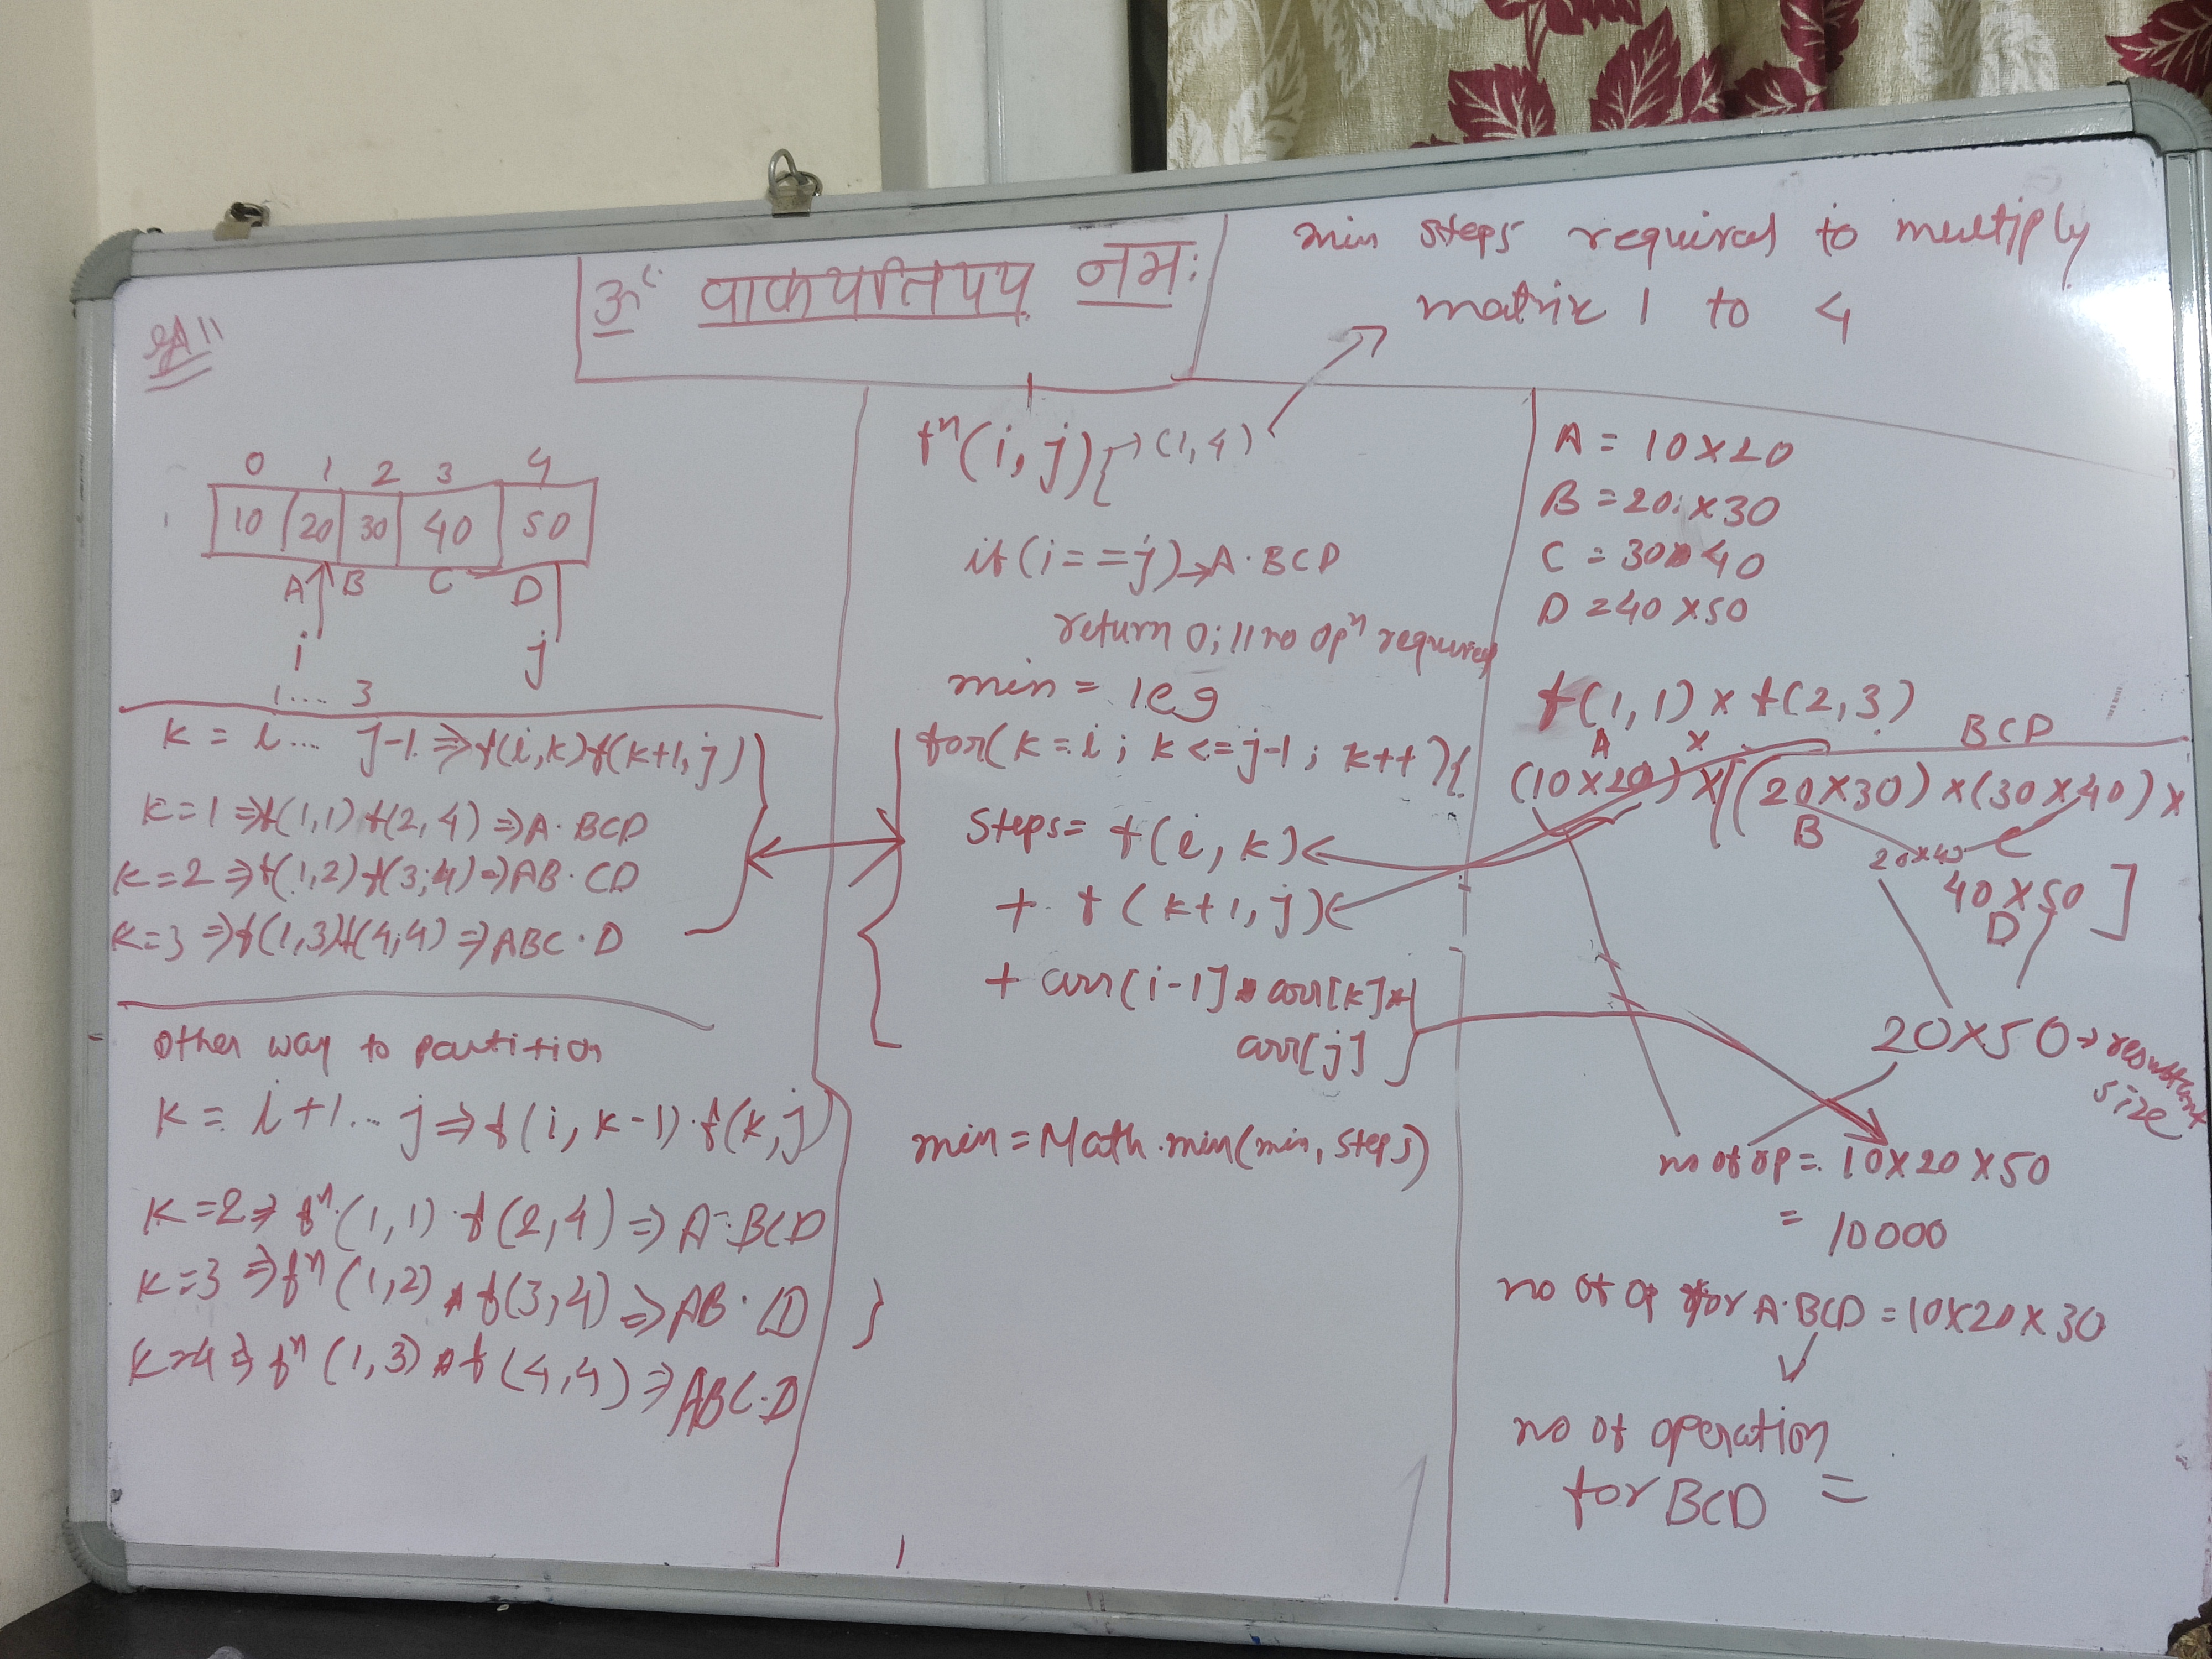 ॐ वाकपतिपय नमः
min steps required to multiply
matrix 1 to 4
0 1 2 3 4
10 20 30 40 50
A B C D
i j
1.... 3
K = i... j-1 => f(i,k) f(k+1,j)
K=1 => f(1,1) f(2,4) => A·BCD
K=2 => f(1,2) f(3,4) => AB·CD
K=3 => f(1,3) f(4,4) => ABC·D
Other way to partition
K = i+1... j => f(i, k-1)·f(k,j)
K=2 => fⁿ(1,1)·f(2,4) => A·BCD
K=3 => fⁿ(1,2) * f(3,4) => AB·CD
K=4 => fⁿ(1,3) * f(4,4) => ABC·D
fⁿ(i,j){ → (1,4)
if(i==j) → A·BCD
return 0; // no opⁿ required
min = 1e9
for(k=i; k<=j-1; k++){
Steps= f(i,k)
+ f(k+1,j)
+ arr[i-1] * arr[k] *
arr[j]
min = Math.min(min, steps)
A = 10×20
B = 20×30
C = 30×40
D = 40×50
f(1,1) × f(2,3)
A × BCD
(10×20) × [(20×30) × (30×40) ×
B C
20×40
40×50 ]
D
20×50 → resultant
size
no of op = 10×20×50
= 10000
no of op for A·BCD = 10×20×30
no of operation
for BCD =